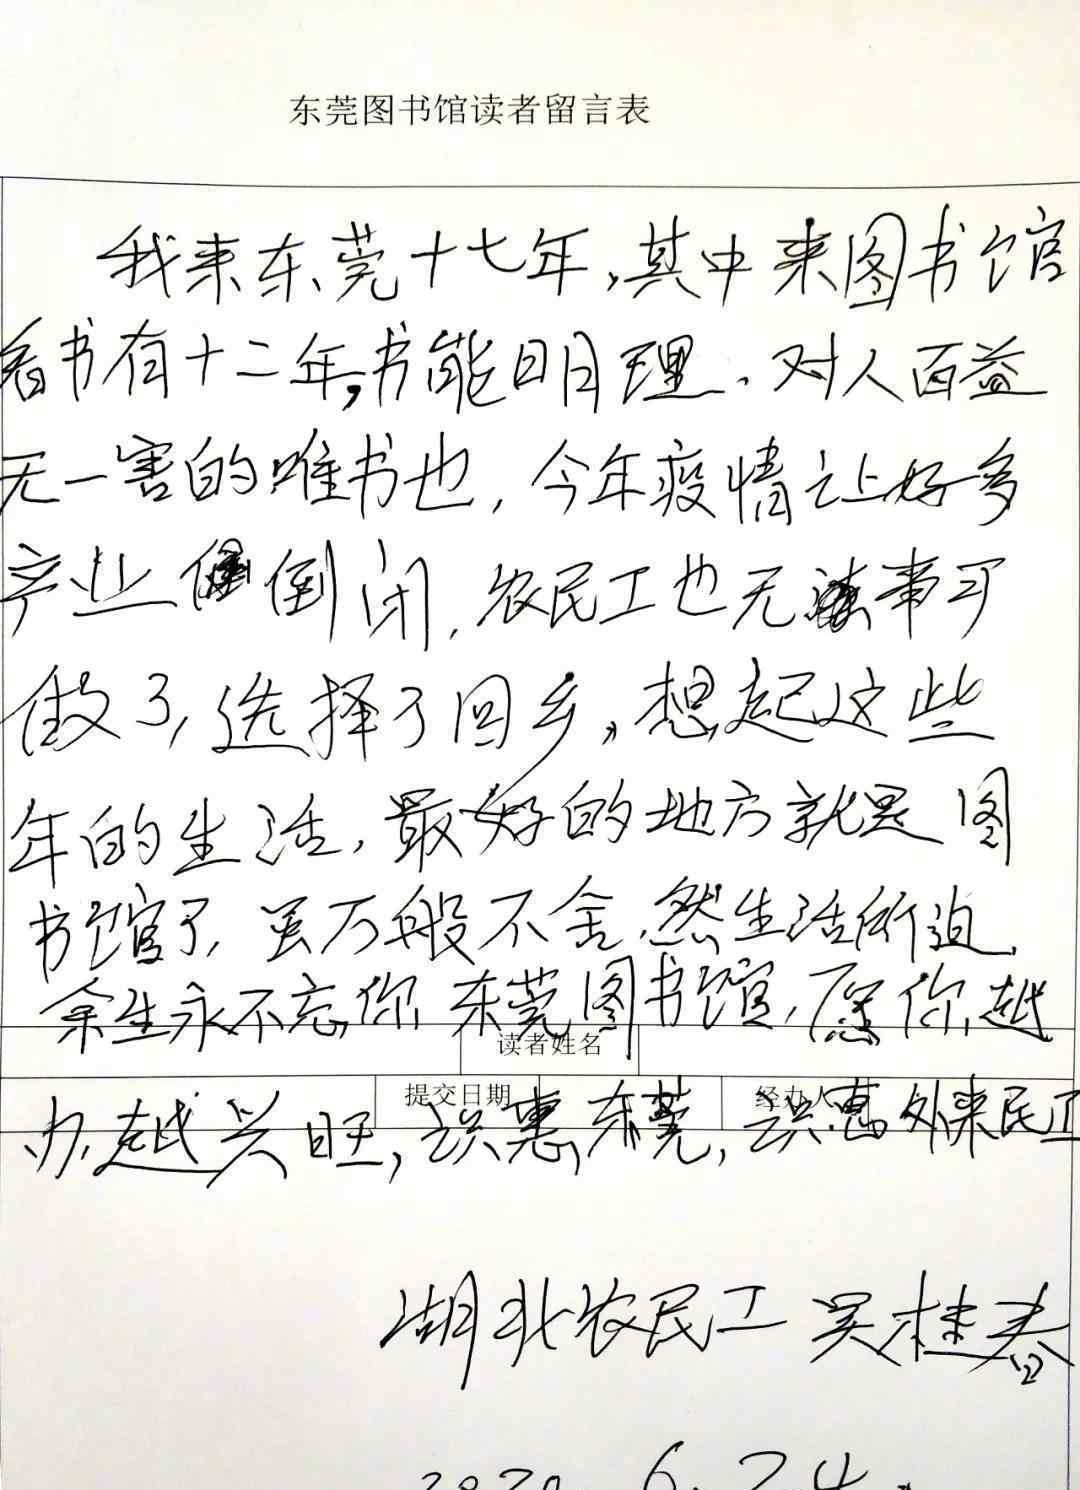 东莞图书馆读者留言表
我来东莞十七年,其中来图书馆
看书有十二年,书能明理、对人百益
无一害的唯书也,今年疫情让好多
产业倒闭,农民工也无事可
做了,选择了回乡。想起这些
年的生活,最好的地方就是图
书馆了,虽万般不舍,然生活所迫,
余生永不忘你东莞图书馆,愿你越
读者姓名
提交日期 经办人
办越兴旺,识惠东莞,识惠外来民工
湖北农民工 吴桂春
2020. 6. 24.